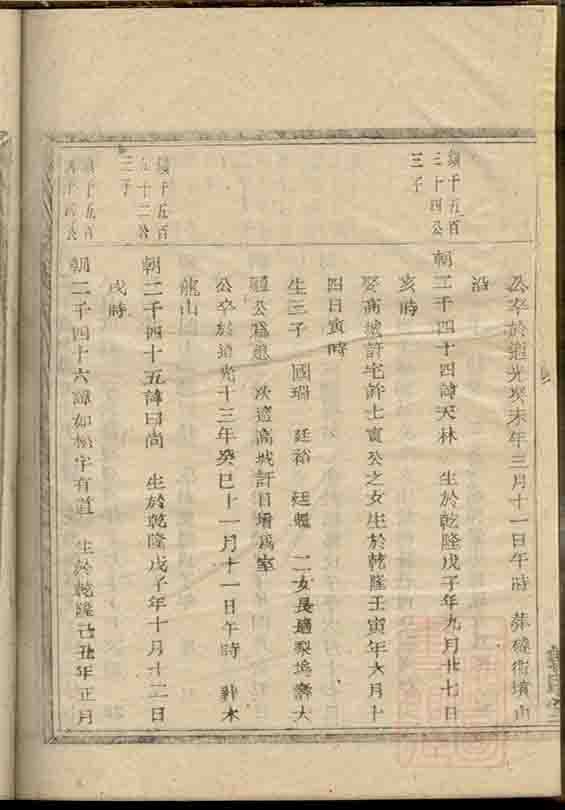 公卒於道光癸未年三月十一日午時 葬
沿
績千五百
三十四公
三子
朝二千四十四諱天林 生於乾隆戊子年九月廿七日
亥時
娶高城許宅幹士寅公之女生於乾隆壬寅年六月十
四日寅時
生三子 國瑞 廷裕 廷 二女長適梨塢壽大
公為媳 次適高城許目壻為室
公卒於道光十三年癸巳十一月十一日午時 葬木
龍山
績千五百
三子
朝二千四十五諱曰尚 生於乾隆戊子年十月十二日
戌時
績千五百
朝二千四十六諱如 字有道 生於乾隆己丑年正月